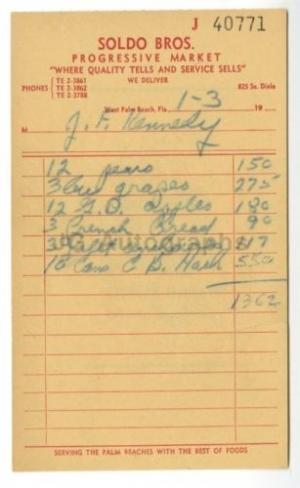 J 40771
SOLDO BROS.
PROGRESSIVE MARKET
"WHERE QUALITY TELLS AND SERVICE SELLS"
WE DELIVER
PHONES TE 2-3861 825 So. Dixie
TE 2-3862
TE 2-3788
West Palm Beach, Fla. 1-3 19
M J. F. Kennedy
12 pears 150
3 grapes 275
12 G. D. Apples 180
3 French Bread 90
3 117
10 Cans C B. Hash 550
1362
SERVING THE PALM BEACHES WITH THE BEST OF FOODS